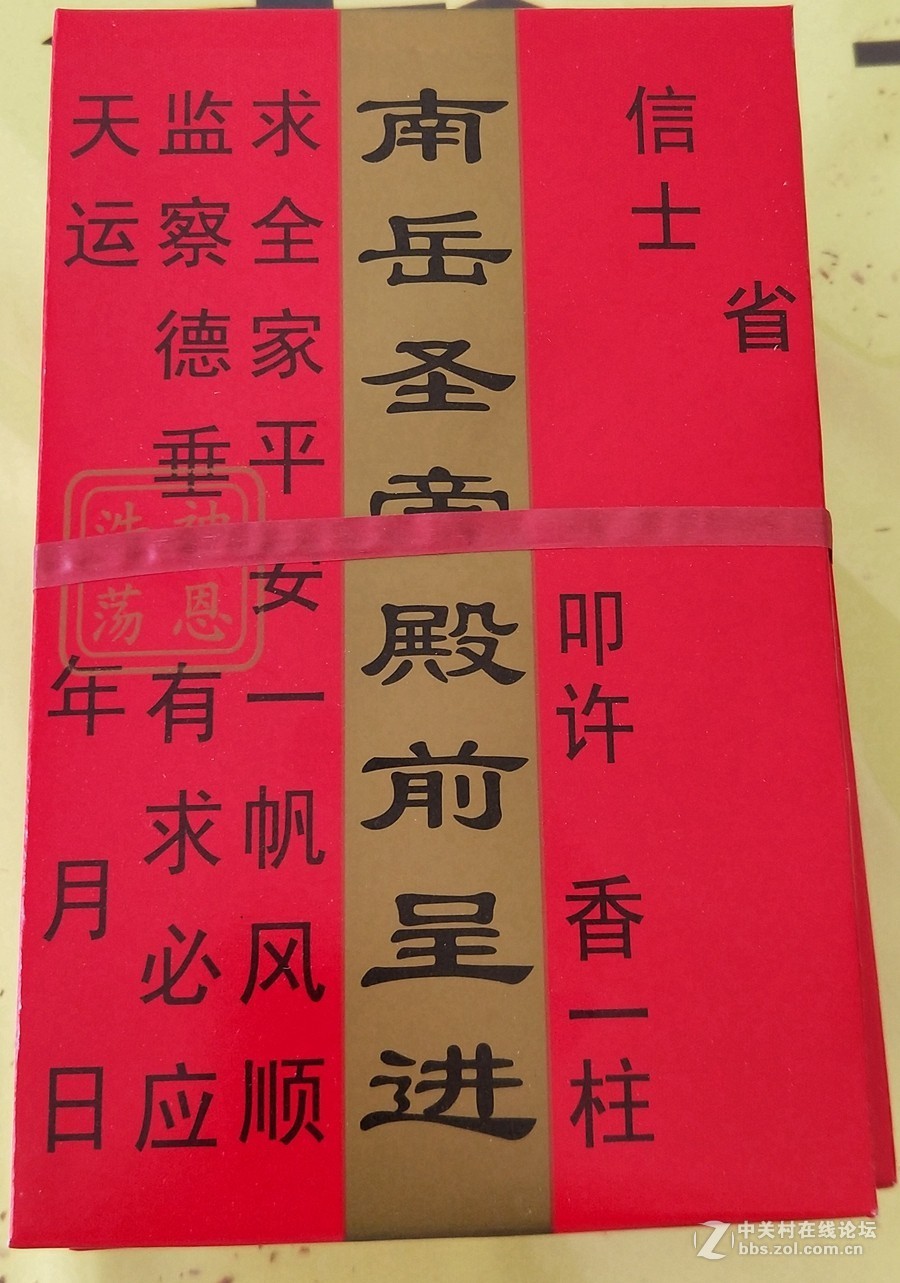 省
信士
叩许 香一柱
南岳圣帝殿前呈进
求全家平安一帆风顺
监察德垂 有求必应
天运 年 月 日
神恩
浩荡
中关村在线论坛
bbs.zol.com.cn